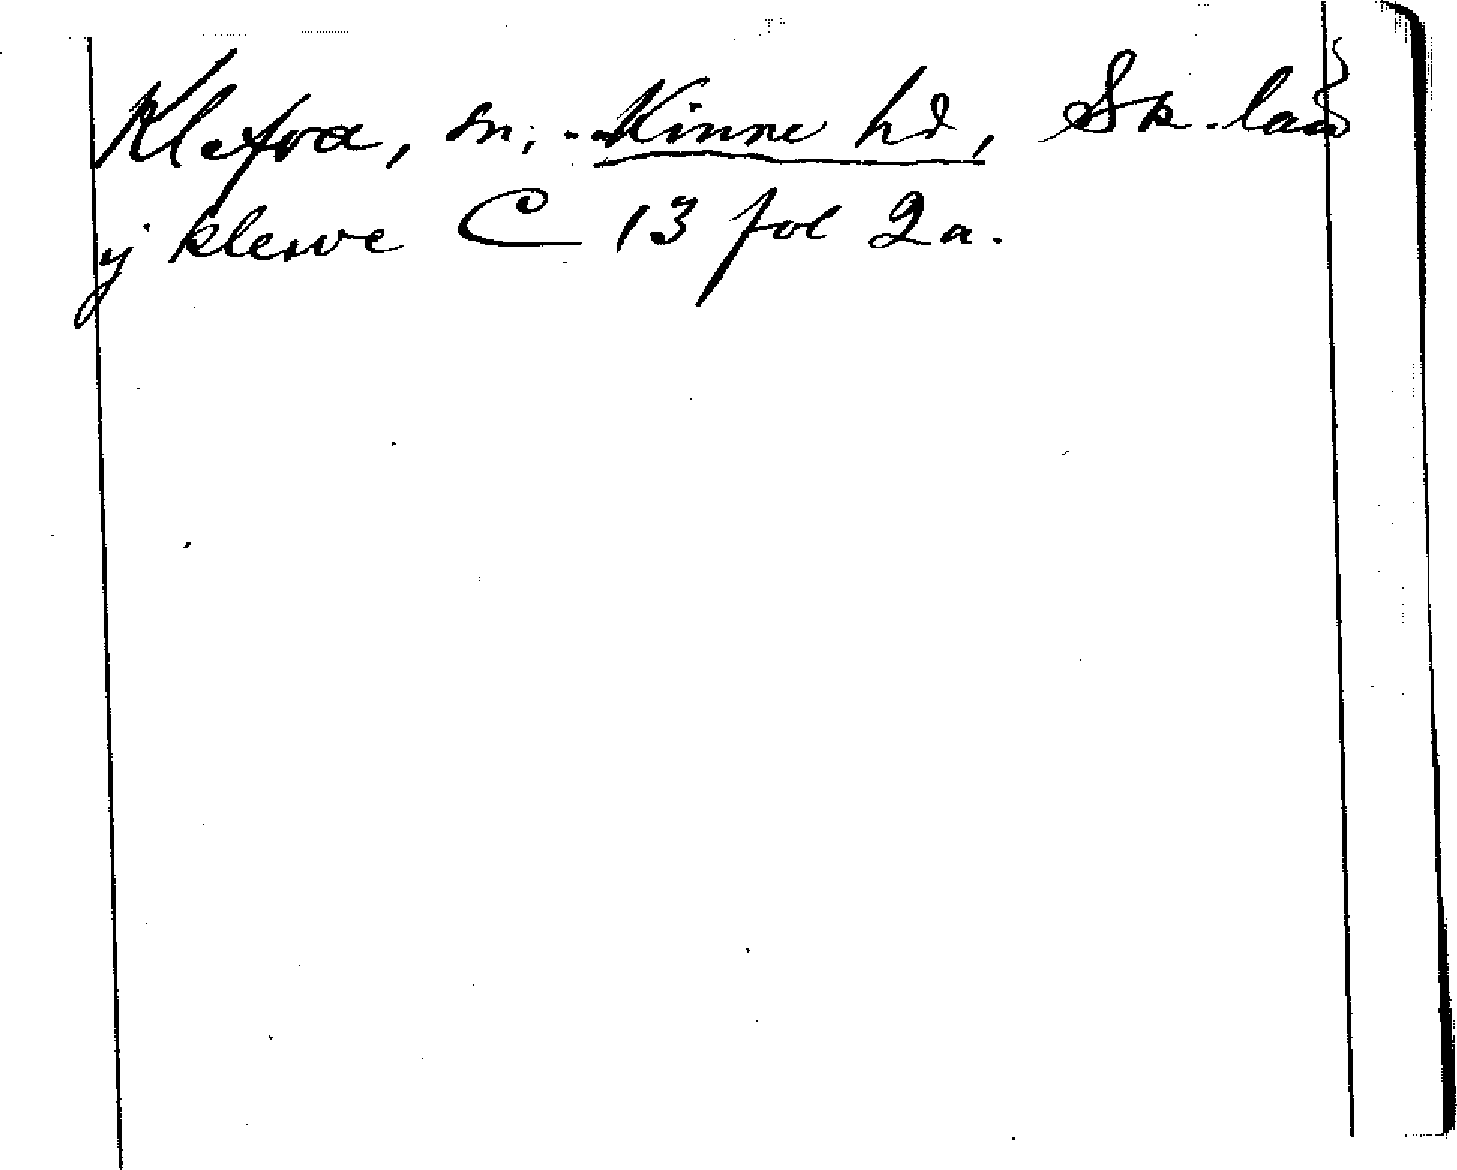 Klefva, sn, Kinne hd, Sk. län
ij klewe C 13 fol 2a.